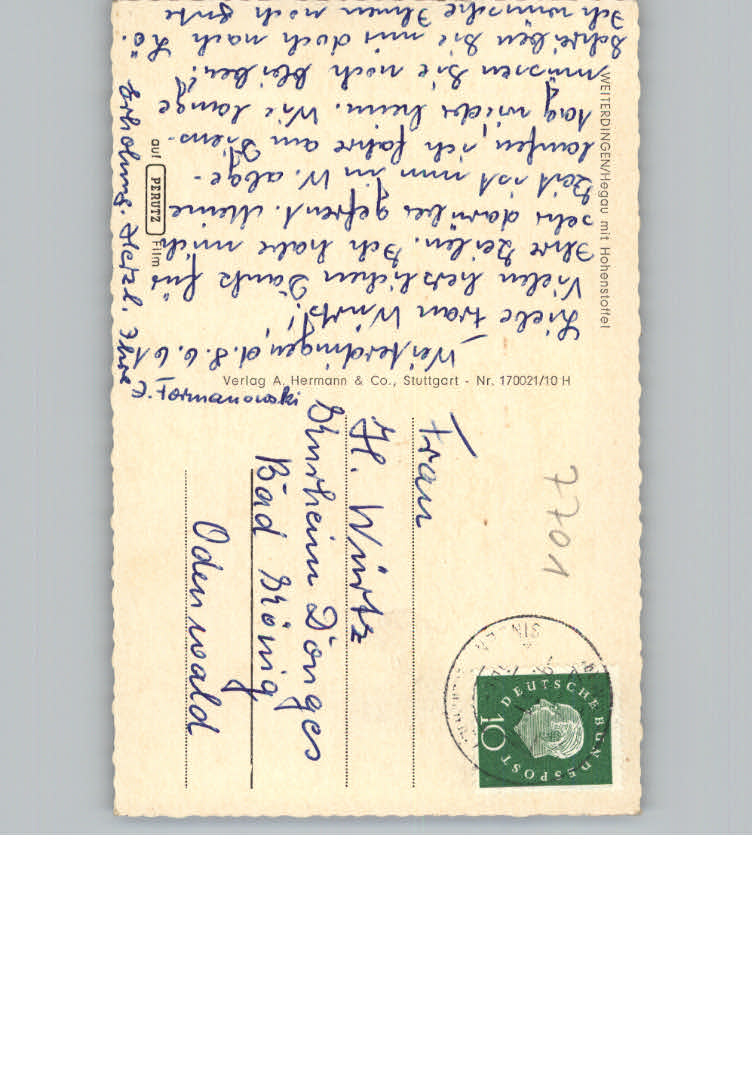 WEITERDINGEN/Hegau mit Hohenstoffel
Weiterdingen, d. 8. 6. 61
Liebe Frau Würtz!
Vielen herzlichen Dank für
Ihre Zeilen. Ich habe mich
sehr darüber gefreut. Meine
Zeit ist nun in W. abge-
laufen, ich fahre am Diens-
tag wieder heim. Wie lange
müssen Sie noch bleiben?
Schreiben Sie mir doch nach Lö.
Ich wünsche Ihnen noch gute
Erholung. Herzl. Ihre
E. Formanowski
auf PERUTZ Film
Verlag A. Hermann & Co., Stuttgart - Nr. 170021/10 H
7701
Frau
H. Würtz
Kurheim Dönges
Bad König
Odenwald
DEUTSCHE BUNDESPOST
10
SINGEN